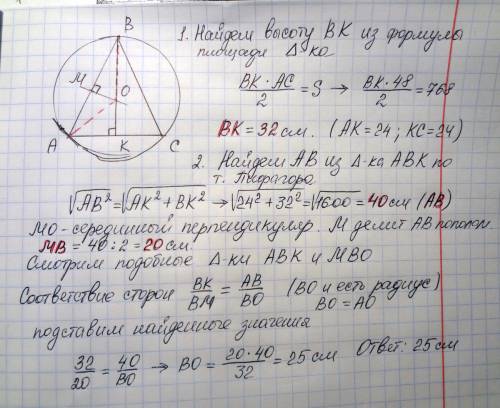 B
M
O
A
K
C
1. Найдем высоту BK из формулы
площади Δ-ка
BK · AC / 2 = S → BK · 48 / 2 = 768
BK = 32 см. (AK = 24; KC = 24)
2. Найдем AB из Δ-ка ABK по
т. Пифагора
√AB² = √AK² + BK² → √24² + 32² = √1600 = 40 см (AB)
MO - серединный перпендикуляр. M делит AB пополам.
MB = 40 : 2 = 20 см.
Смотрим подобные Δ-ки ABK и MBO
Соответствие сторон BK / BM = AB / BO (BO и есть радиус)
BO = AO
подставим найденные значения
32 / 20 = 40 / BO → BO = 20 · 40 / 32 = 25 см
Ответ: 25 см